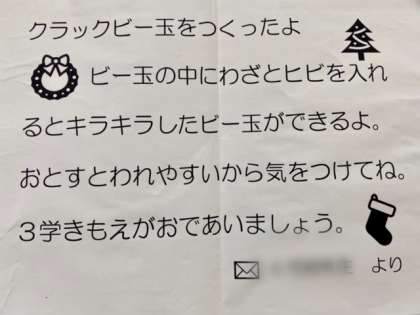 クラックビー玉をつくったよ
ビー玉の中にわざとヒビを入れ
るとキラキラしたビー玉ができるよ。
おとすとわれやすいから気をつけてね。
３学きもえがおであいましょう。
より